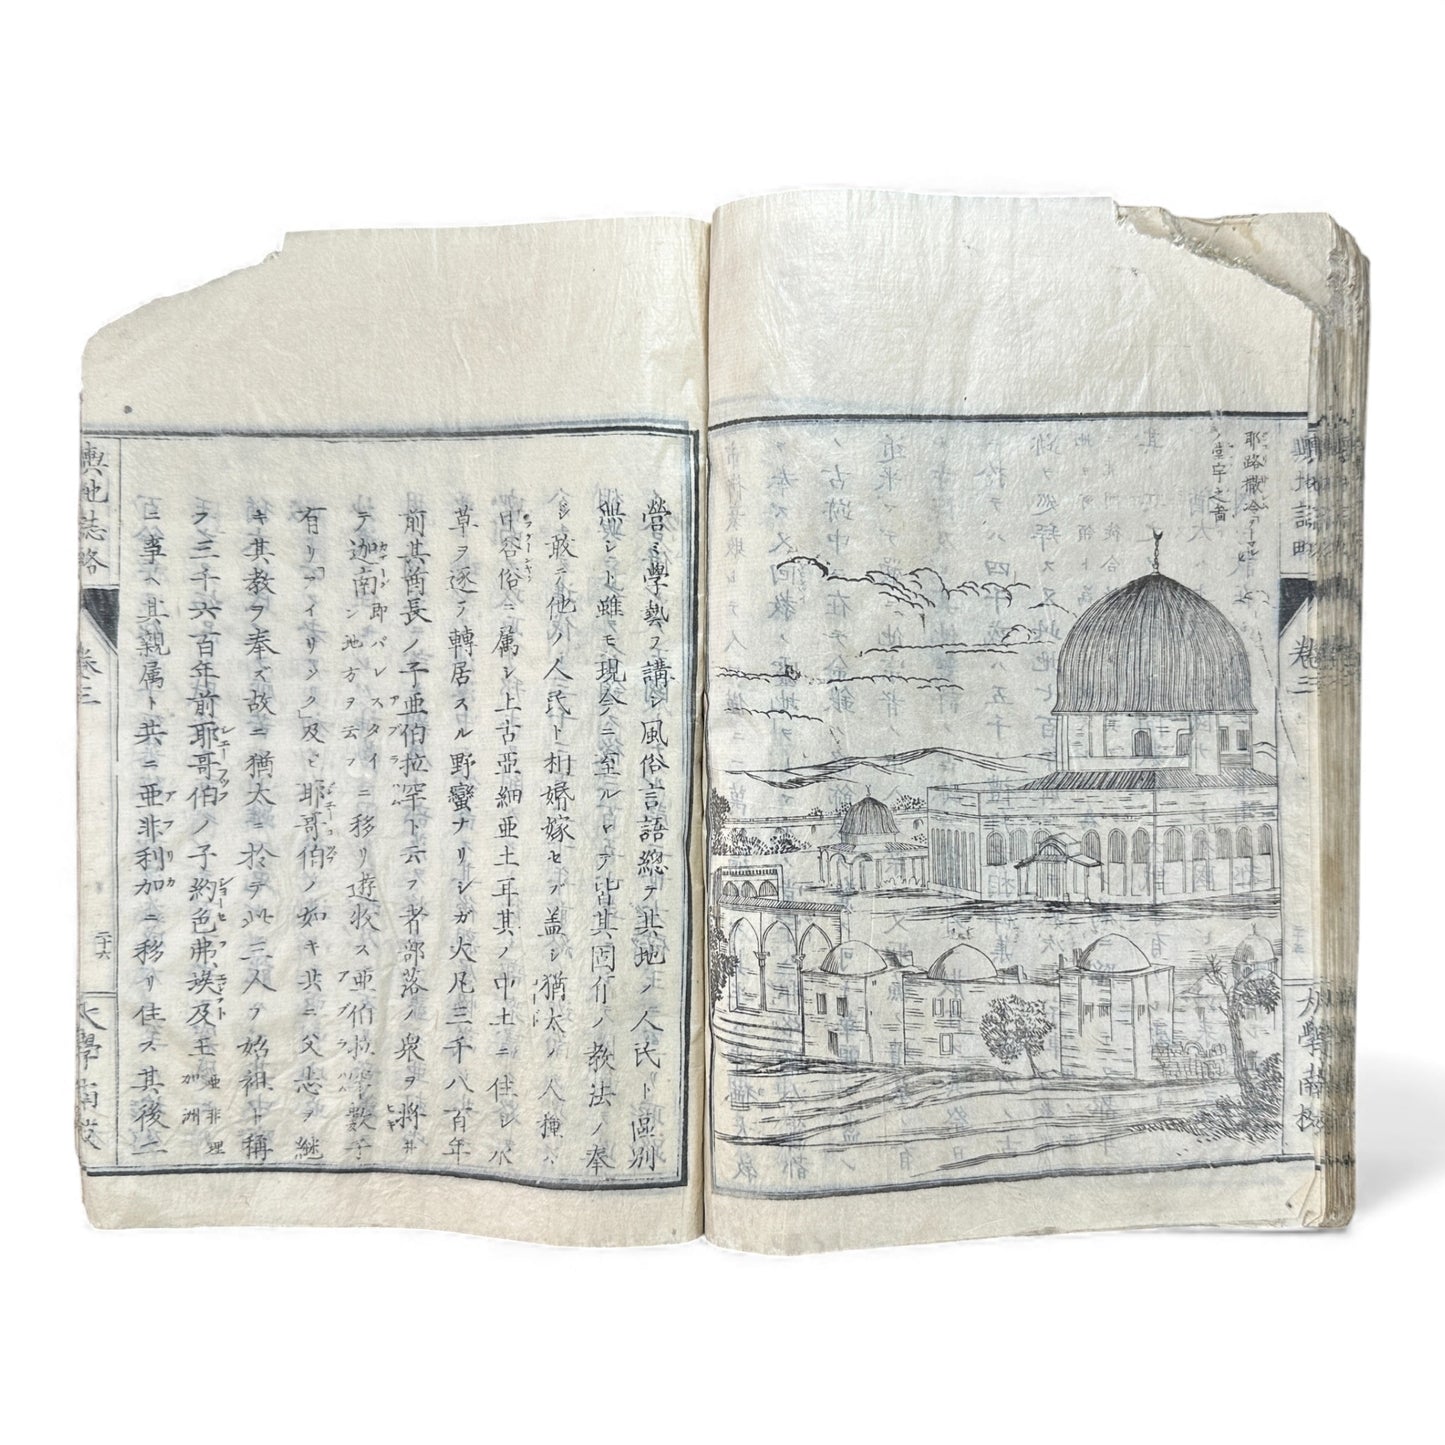 耶路撒冷
ノ堂宇之圖
輿地誌略
卷三
大學南校
營ミ學藝ヲ講シ風俗言語總テ其地ノ人民ト區別
無シト雖モ現今ニ至ルマテ皆其固有ノ教法ノ奉
シ敢テ他ノ人民ト相婚嫁セズ蓋シ猶太ノ人種ハ
ニ属シ上古亞細亜土耳其ノ中土ニ住シ水
草ヲ逐テ轉居スル野蠻ナリシガ大凡三千八百年
前其酋長ノ子亜伯拉罕ト云フ者部落ノ衆ヲ將井
テ迦南即バレスタインノ地方ヲ云フニ移リ遊牧ス亜伯拉罕數子
有リ及ビ耶哥伯ノ如キ共ニ父志ヲ継
キ其教ヲ奉ズ故ニ猶太ニ於テ此三人ヲ始祖ト稱
ヲ三千六百年前耶哥伯ノ子約色弗埃及王亜非理加洲
ニ事ヘ其親属ト共ニ亜非利加ニ移リ住ス其後二
輿地誌略
卷三
二十六
大學南校